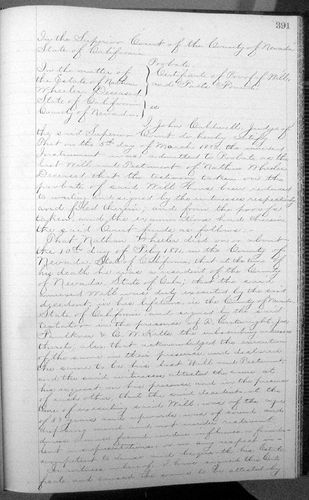 391
In the Superior Court of the County of Nevada
State of California
In the matter of
the Estate of Nathan
Wheeler Deceased
State of California
County of Nevada
Probate
Certificate of Proof of Will
and Facts Found
ss
I John Caldwell Judge of
the said Superior Court do hereby certify
That on the 5th day of March the annexed
Instrument was admitted to Probate as the
last Will and Testament of Nathan Wheeler
Deceased that the testimony taken on the
probate of said Will has been reduced
to writing signed by the witnesses respectively
and filed therein, and from the proofs
taken and the examinations had therein
the said Court finds as follows
That Nathan Wheeler died on or about
the 10th day of Feby in the County of
Nevada State of California, that at the time of
his death he was a resident of the County
of Nevada State of Cal, that the said
annexed Will was duly executed by the said
decedent in his lifetime in the County of Nevada
State of California and signed by the said
testator in the presence of
the subscribing witnesses
thereto, also that acknowledged the execution
of the same in their presence and declared
the same to be his last Will and Testament
and the said witnesses attested the same at
his request in his presence and in the presence
of each other, that the said decedent at the
time of executing said Will was of the age
of years and upwards was of sound and
disposing mind and not under restraint
undue influence or fraudu-
lent representations nor in any respect in-
competent to devise and bequeath his Estate
In witness whereof I have signed this Certi-
ficate and caused the same to be attested by